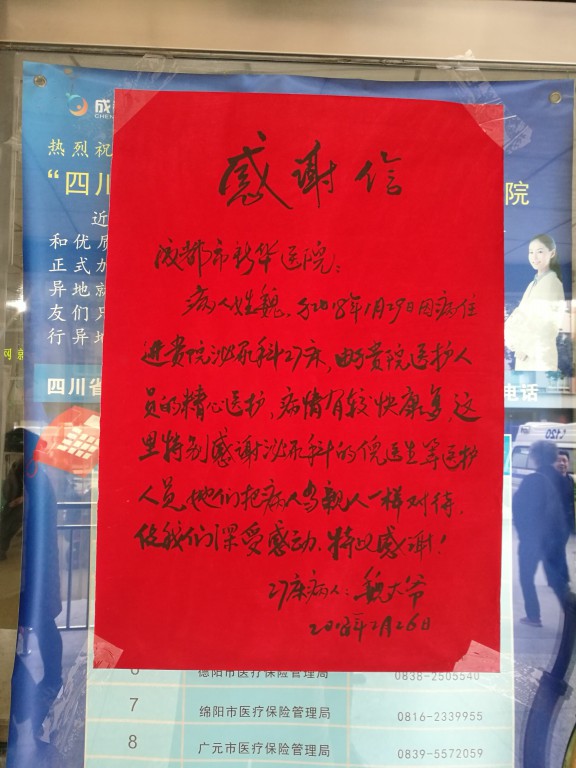 成
CHEN
热烈祝
“四川
院
近
和优质
正式加
异地就
友们只
行异地
网就
四川省
电话
120
感谢信
成都市新华医院:
病人姓魏,于2018年1月29日因病住
进贵院泌尿科27床,由于贵院医护人
员的精心医护,病情有较快康复,这
里特别感谢泌尿科的倪医生等医护
人员她们把病人当亲人一样对待,
使我们深受感动,特此感谢!
27床病人:魏大爷
2018年2月26日
6 德阳市医疗保险管理局 0838-2505540
7 绵阳市医疗保险管理局 0816-2339955
8 广元市医疗保险管理局 0839-5572059